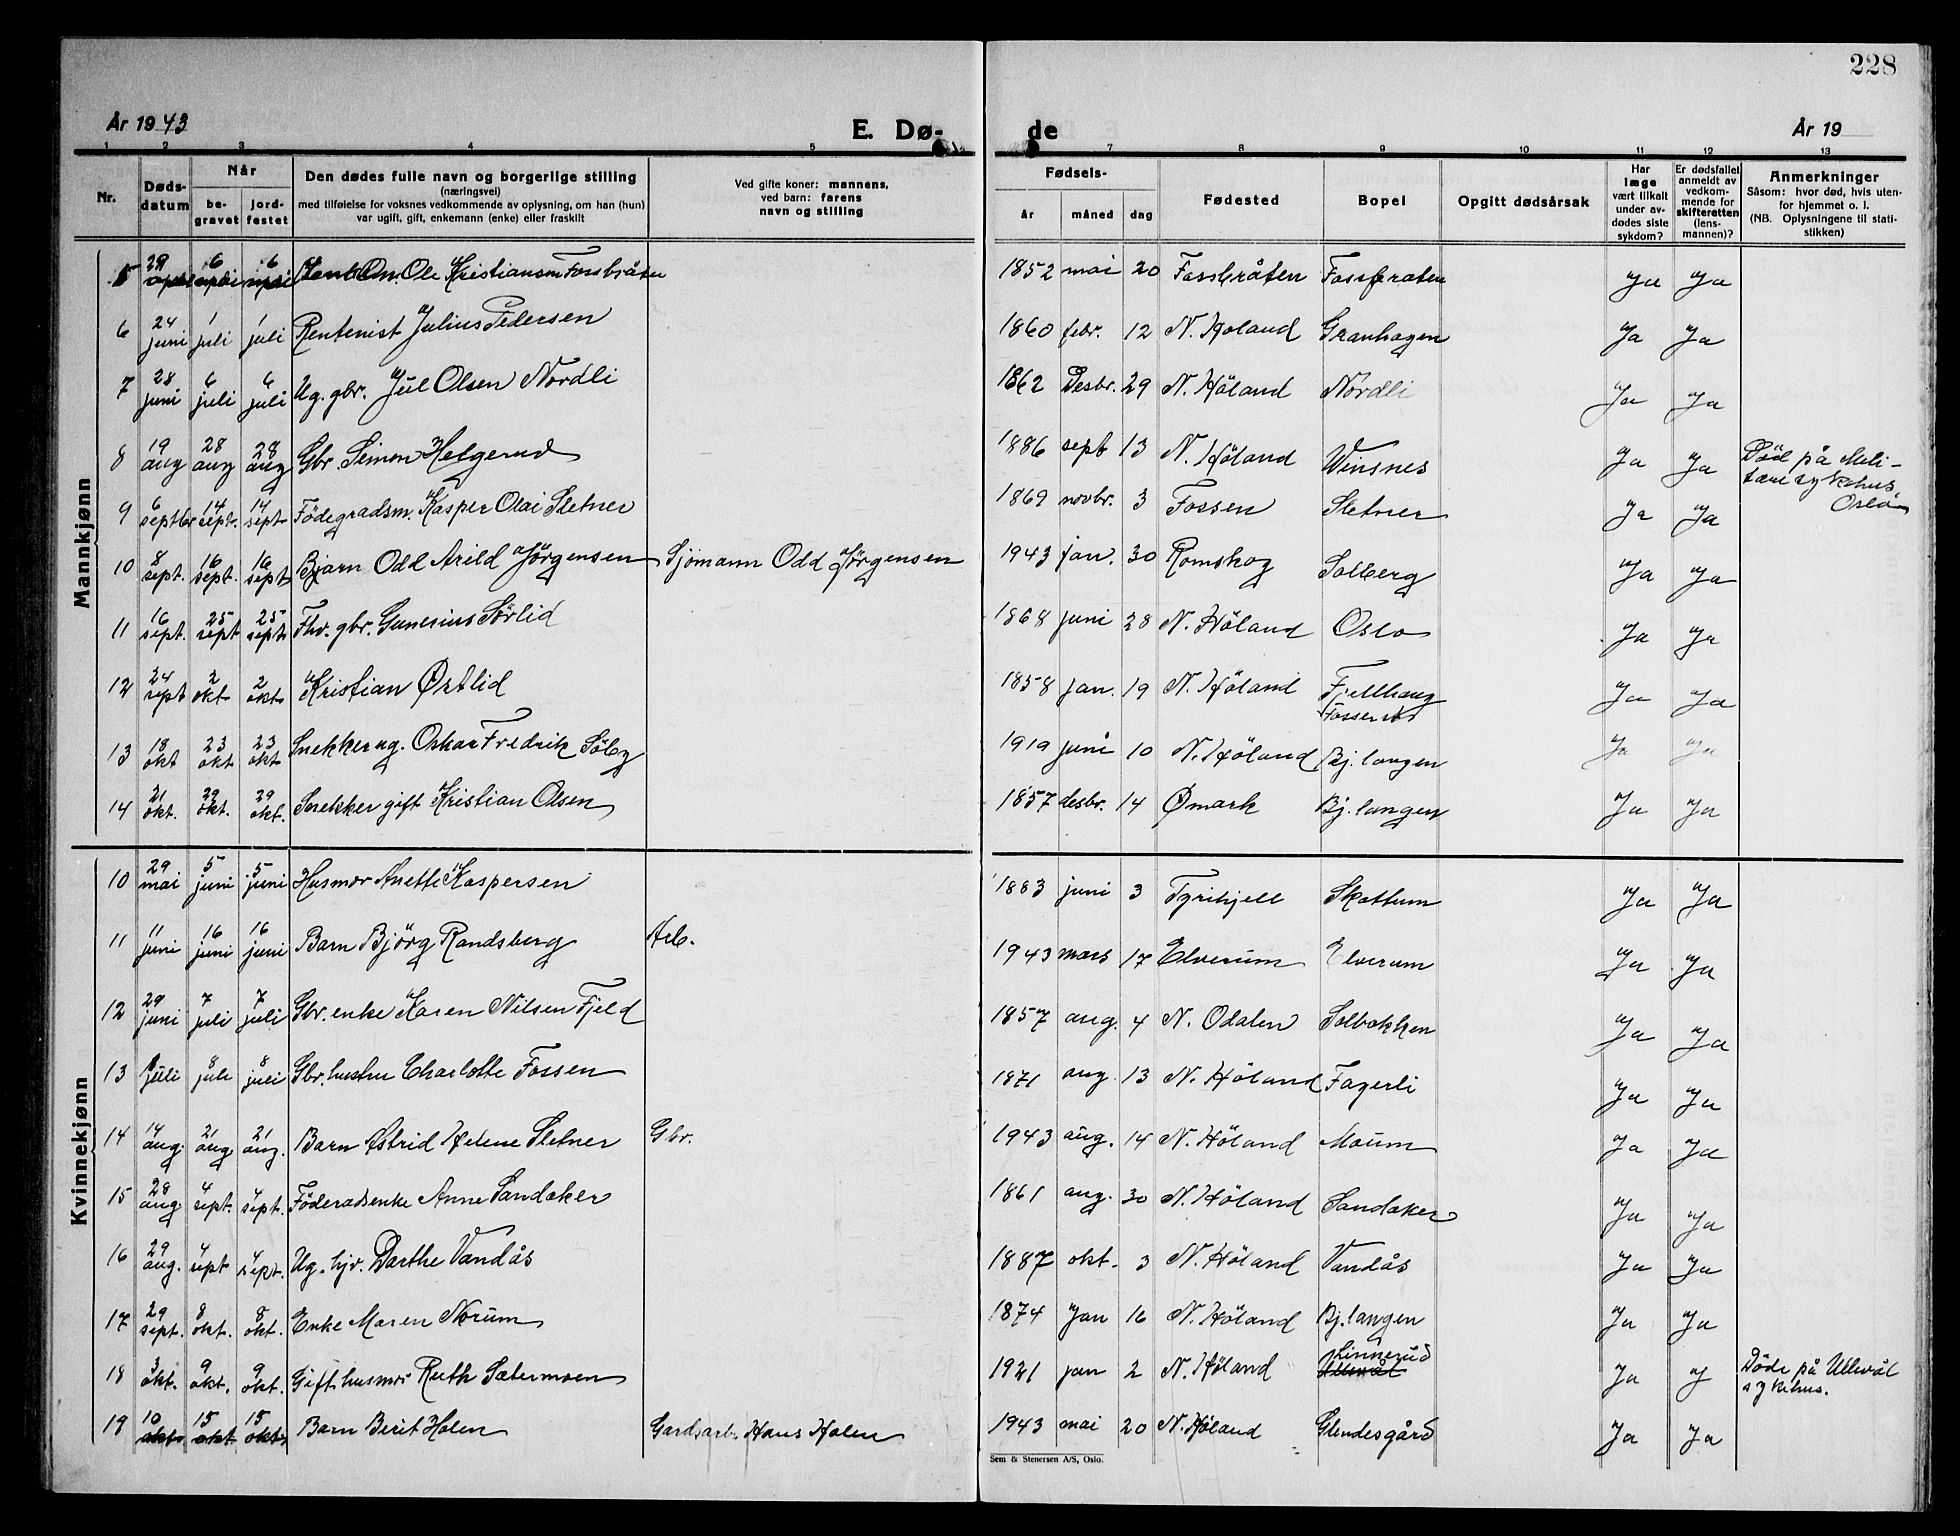 228
År 1943
E. Dø-
de
År 19
1 2 3 4 5 7 8 9 10 11 12 13
Nr.
Døds-
datum
Når
be-
gravet
jord-
festet
Den dødes fulle navn og borgerlige stilling
(næringsvei)
med tilføielse for voksnes vedkommende av oplysning, om han (hun)
var ugift, gift, enkemann (enke) eller fraskilt
Ved gifte koner: mannens,
ved barn: farens
navn og stilling
Fødsels-
år måned dag
Fødested
Bopel
Opgitt dødsårsak
Har
læge
vært tilkalt
under av-
dødes siste
sykdom?
Er dødsfallet
anmeldt av
vedkom-
mende for
skifteretten
(lens-
mannen)?
Anmerkninger
Såsom: hvor død, hvis uten-
for hjemmet o. l.
(NB. Oplysningene til stati-
stikken)
Mannkjønn
5 29 6 6 Ole Kristiansen Fossbråten 1852 mai 20 Fossbråten Fossbråten Ja Ja
6 24 juni 1 juli 1 juli Rentenist Julius Pedersen 1860 febr. 12 N. Høland Granhagen Ja Ja
7 28 juni 6 juli 6 juli Ug. gbr. Jul Olsen Nordli 1862 Desbr. 29 N. Höland Nordli Ja Ja
8 19 aug 28 aug 28 aug Gbr. Simon Helgerud 1886 sept 13 N. Höland Winsnes Ja Ja Död på Mili-
tære sykehus
Oslo
9 6 septbr 14 sept. 14 sept Födegradsm. Kasper Olai Sletner 1869 novbr. 3 Fossen Sletner Ja Ja
10 8 sept. 16 sept. 16 sept Bjarn Odd Arild Jörgensen Sjömann Odd Jörgensen 1943 jan. 30 Romskog Solberg Ja Ja
11 16 sept. 25 sept 25 sept. Fhv. gbr. Gunerius Sörlid 1868 juni 28 N. Höland Oslo Ja Ja
12 24 sept 2 okt 2 okt Kristian Østlid 1858 jan. 19 N. Höland Fjellhaug
Fosser Ja Ja
13 18 okt 23 okt 23 okt Snekker ug. Oskar Fredrik Söby 1919 juni 10 N. Höland Bj.langen Ja Ja
14 21 okt. 29 okt. 29 okt. Snekker gift Kristian Olsen 1857 desbr. 14 Ømark Bj.langen Ja Ja
Kvinnekjønn
10 29 mai 5 juni 5 juni Husmor Anette Kaspersen 1883 juni 3 Tyrihjell Skattum Ja Ja
11 11 juni 16 juni 16 juni Barn Björg Randsberg Arb. 1943 mars 17 Elverum Elverum Ja Ja
12 29 juni 7 juli 7 juli Gbr. enke Karen Nilsen Fjeld 1857 aug. 4 N. Odalen Solbakken Ja Ja
13 1 juli 8 juli 8 juli Gbr. hustru Charlotte Fossen 1871 aug. 13 N. Höland Fagerli Ja Ja
14 14 aug. 21 aug 21 aug. Barn Astrid Helene Sletner Gbr. 1943 aug. 14 N. Höland Moum Ja Ja
15 28 aug 4 sept. 4 sept. Föderadsenke Anne Sandaker 1861 aug. 30 N. Höland Sandaker Ja Ja
16 29 aug. 4 sept 4 sept. Ug. hjv. Dorthe Vandås 1887 okt. 3 N. Höland Vandås Ja Ja
17 29 sept. 8 okt. 8 okt. Enke Maren Norum 1874 Jan 16 N. Höland Bj.langen Ja Ja
18 3 okt. 9 okt. 9 okt. Gift husmor Ruth Sætermoen 1921 jan 2 N. Höland Linnerud Ja J Döde på Ullevål
sykehus.
19 10 okt. 15 okt. 15 okt. Barn Berit Holen Gardsarb. Hans Holen 1943 mai 20 N. Höland Glendesgård Ja Ja
Sem & Stenersen A/S, Oslo.